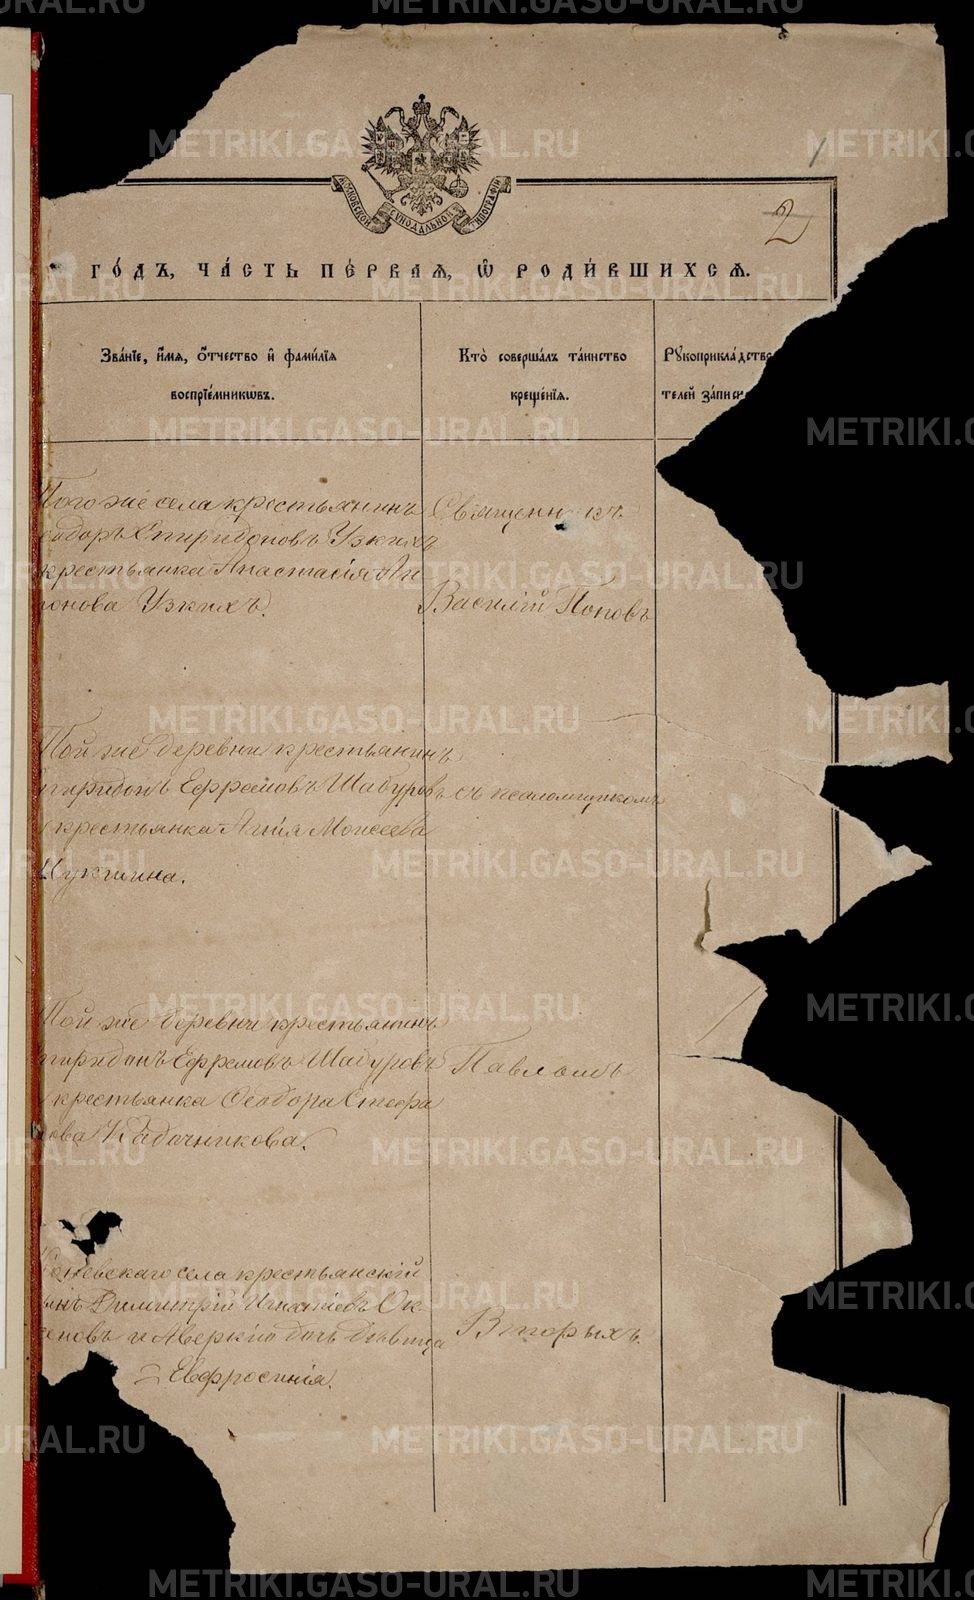 METRIKI.GASO-URAL.RU
МОСКОВСКОЙ СѴНОДАЛЬНОЙ ТИПОГРАФІИ
2
ГО́ДЪ, ЧА́СТЬ ПЕ́РВАѦ, Ѽ РОДИ́ВШИХСѦ.
Зва́нїе, и҆́мѧ, ѻ҆́тчество и҆ фамі́лїѧ
воспрїе́мникѡвъ.
Кто̀ соверша́лъ та́инство
креще́нїѧ.
Рꙋкоприкла́дство
телей за́писи
Того же села крестьянинъ
еодоръ Спиридоновъ Узкихъ
крестьянка Анастасія Ан
тонова Узкихъ.
Священникъ
Василій Поповъ
Той же деревни крестьянинъ
пиридонъ Ефремовъ Шабуровъ
крестьянка Агнія Моисеева
Щукина.
съ псаломщикомъ
Той же деревни крестьянинъ
пиридонъ Ефремовъ Шабуровъ
крестьянка Ѳеодора Стефа
нова Кадочникова.
Павломъ
Коневскаго села крестьянскій
сынъ Димитрій Игнатіевъ Ок
еновъ и Аверкія дочь дѣвица
Евфросинія.
Вторыхъ.